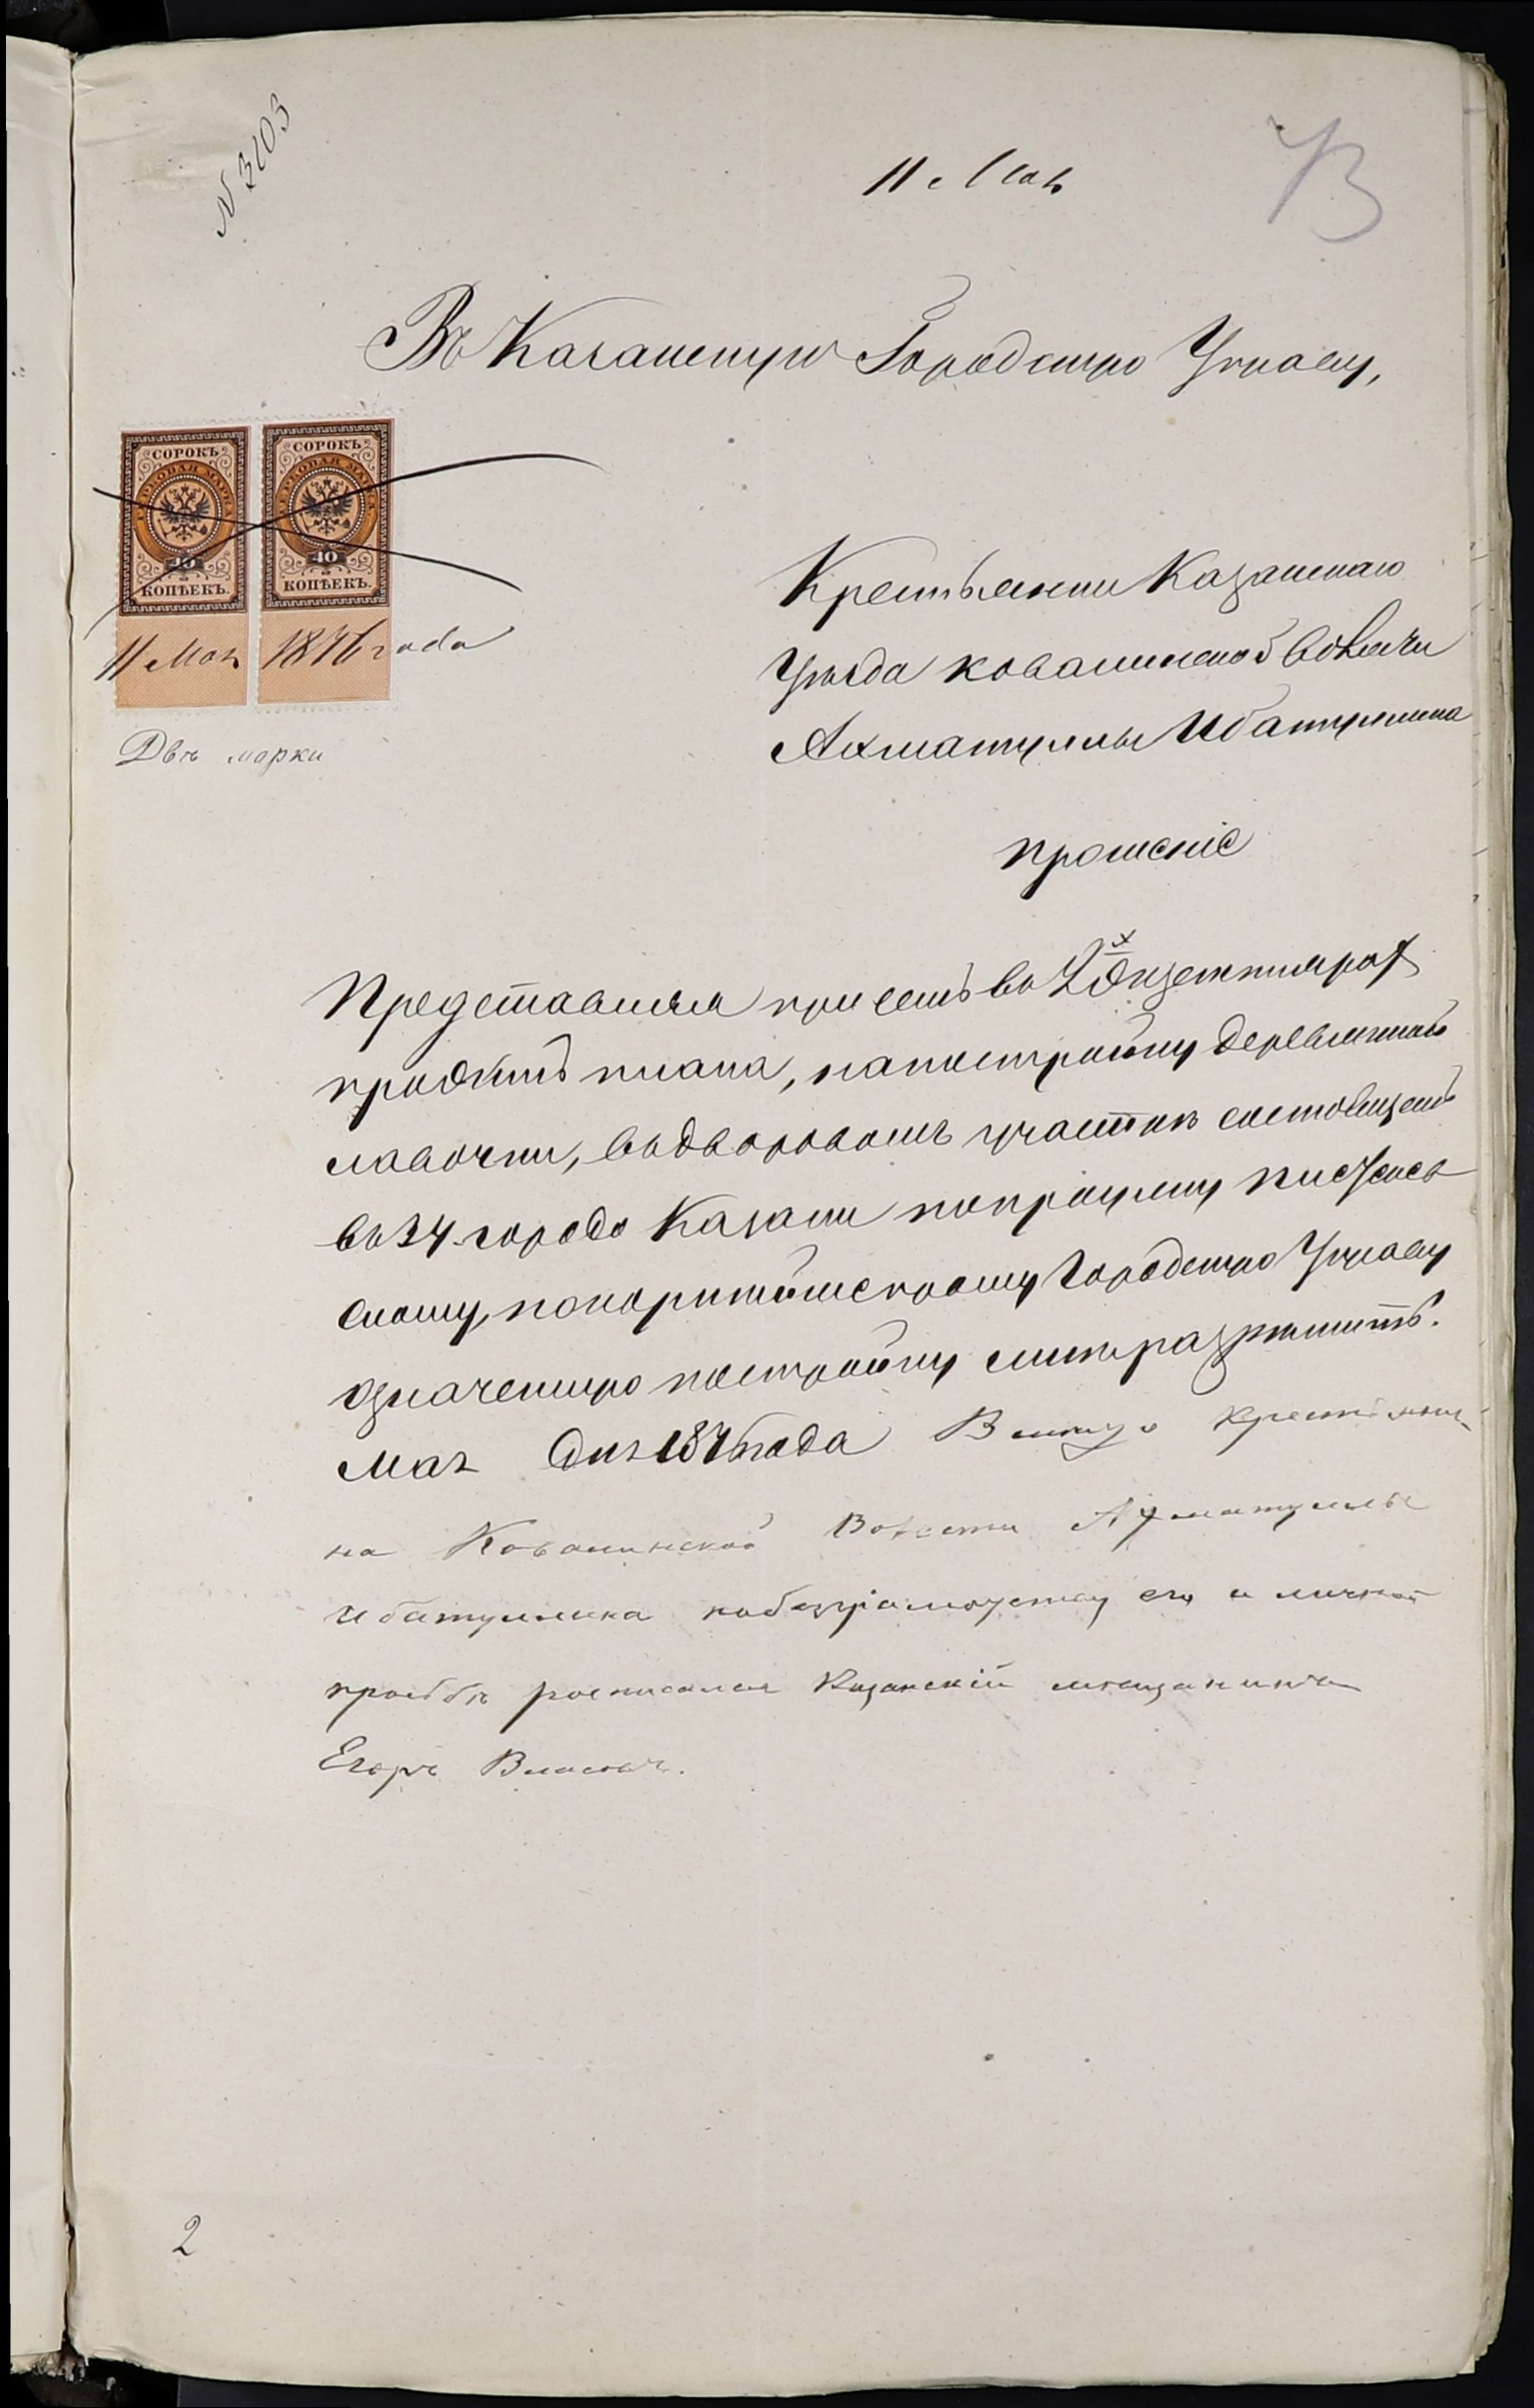 N 3103
11 Мая
Въ Казанскую Городскую Управу,
СОРОКЪ СОРОКЪ
ГЕРБОВАЯ МАРКА ГЕРБОВАЯ МАРКА
40 40
КОПѢЕКЪ. КОПѢЕКЪ.
11 Мая 1876 года
Двѣ марки
Крестьянина Казанскаго
Уѣзда Ковалинской волости
Ахматуллы Ибатуллина
прошеніе
Представляя при семъ въ 2х экземплярах
проэктъ плана, на постройку деревянной
лавочки, въ дворовомъ участкѣ состоящемъ
въ 3 ч. города Казани по
покорнѣйше прошу Городскую Управу
означенную постройку мнѣ разрѣшить.
Мая дня 1876 года Вмѣсто крестьяни
на Ковалинской Волости Ахматуллы
Ибатуллина по безграмотству его и личной
прозьбѣ росписался Казанскій мѣщанинъ
Егоръ Власовъ.
2